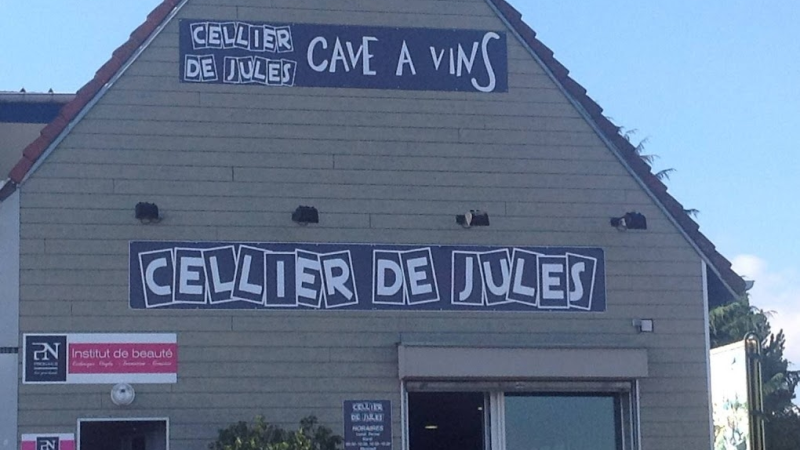 CELLIER
DE JULES
CAVE A VINS
CELLIER DE JULES
PN
Institut de beauté
CELLIER
DE JULES
HORAIRES
PN